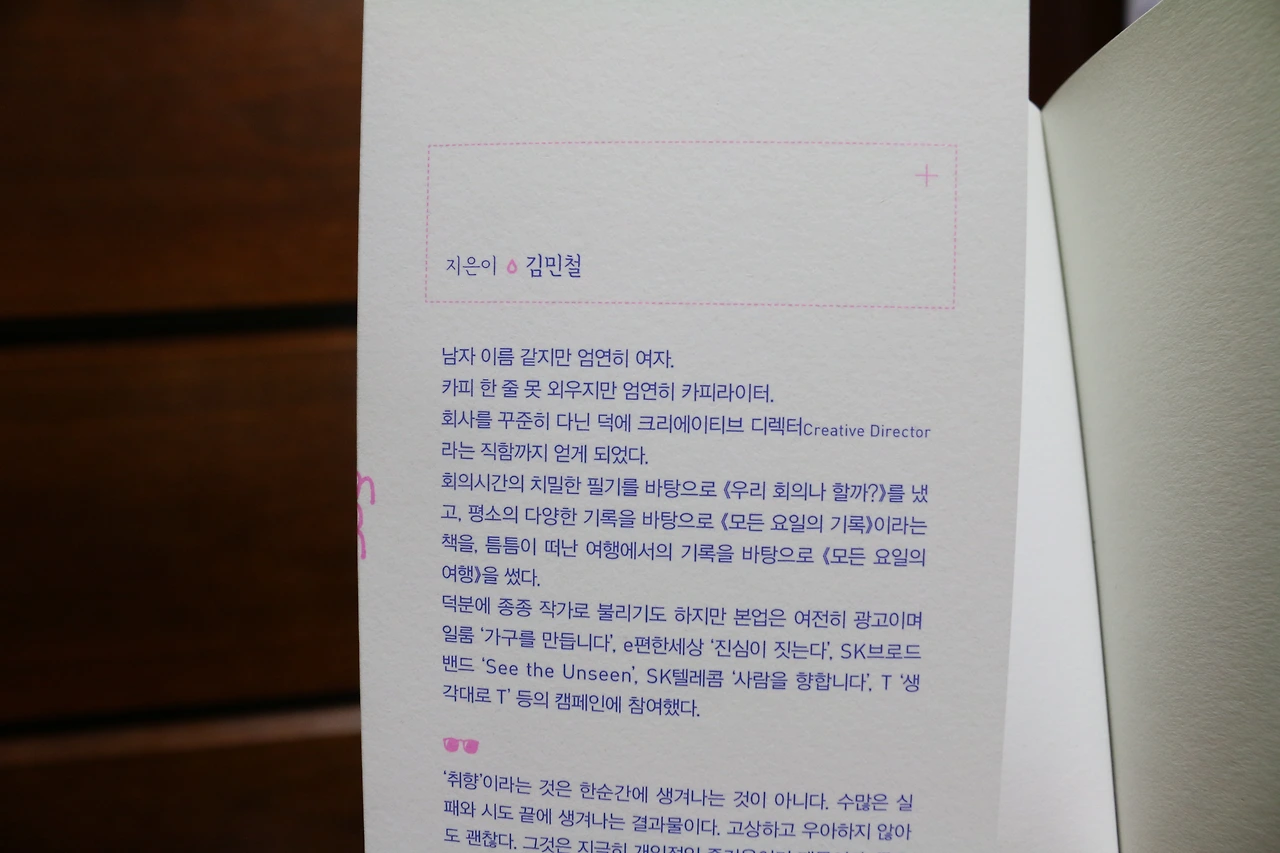 지은이 김민철
남자 이름 같지만 엄연히 여자.
카피 한 줄 못 외우지만 엄연히 카피라이터.
회사를 꾸준히 다닌 덕에 크리에이티브 디렉터Creative Director
라는 직함까지 얻게 되었다.
회의시간의 치밀한 필기를 바탕으로 《우리 회의나 할까?》를 냈
고, 평소의 다양한 기록을 바탕으로 《모든 요일의 기록》이라는
책을, 틈틈이 떠난 여행에서의 기록을 바탕으로 《모든 요일의
여행》을 썼다.
덕분에 종종 작가로 불리기도 하지만 본업은 여전히 광고이며
일룸 ‘가구를 만듭니다’, e편한세상 ‘진심이 짓는다’, SK브로드
밴드 ‘See the Unseen’, SK텔레콤 ‘사람을 향합니다’, T ‘생
각대로 T’ 등의 캠페인에 참여했다.
‘취향’이라는 것은 한순간에 생겨나는 것이 아니다. 수많은 실
패와 시도 끝에 생겨나는 결과물이다. 고상하고 우아하지 않아
도 괜찮다. 그것은 지극히 개인적인